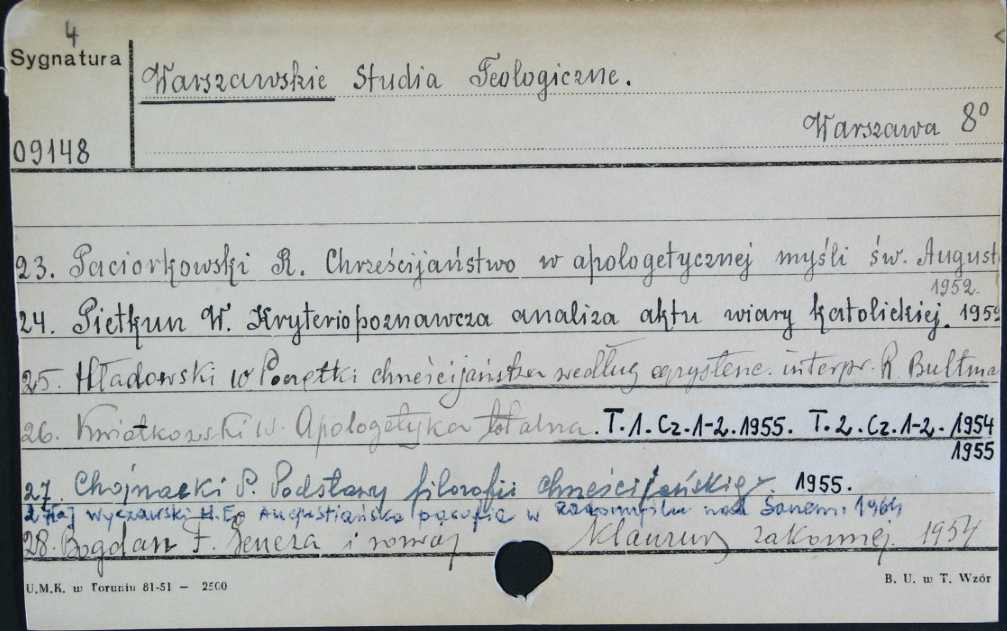 4
Sygnatura
Warszawskie Studia Teologiczne.
Warszawa 8°
09148
23. Paciorkowski R. Chrześcijaństwo w apologetycznej myśli św. August
1952.
24. Pietkun W. Kryteriopoznawcza analiza aktu wiary katolickiej. 195
25. Hładowski W Początki chrześcijaństwa według egzystenc. interpr. R. Bultma
26. Kwiatkowski W. Apologetyka totalna. T.1. Cz.1-2. 1955. T.2. Cz.1-2. 1954
1955
27. Chojnacki P. Podstawy filozofii chrześcijańskiej. 1955.
27 Wyczawski H.E. Augustiańska parafia w nad Sanem. 1964
28. Bogdan F. Geneza i rozwój klauzury zakonnej. 1954
U.M.K. w Toruniu 81-51 — 2500
B. U. w T. Wzór